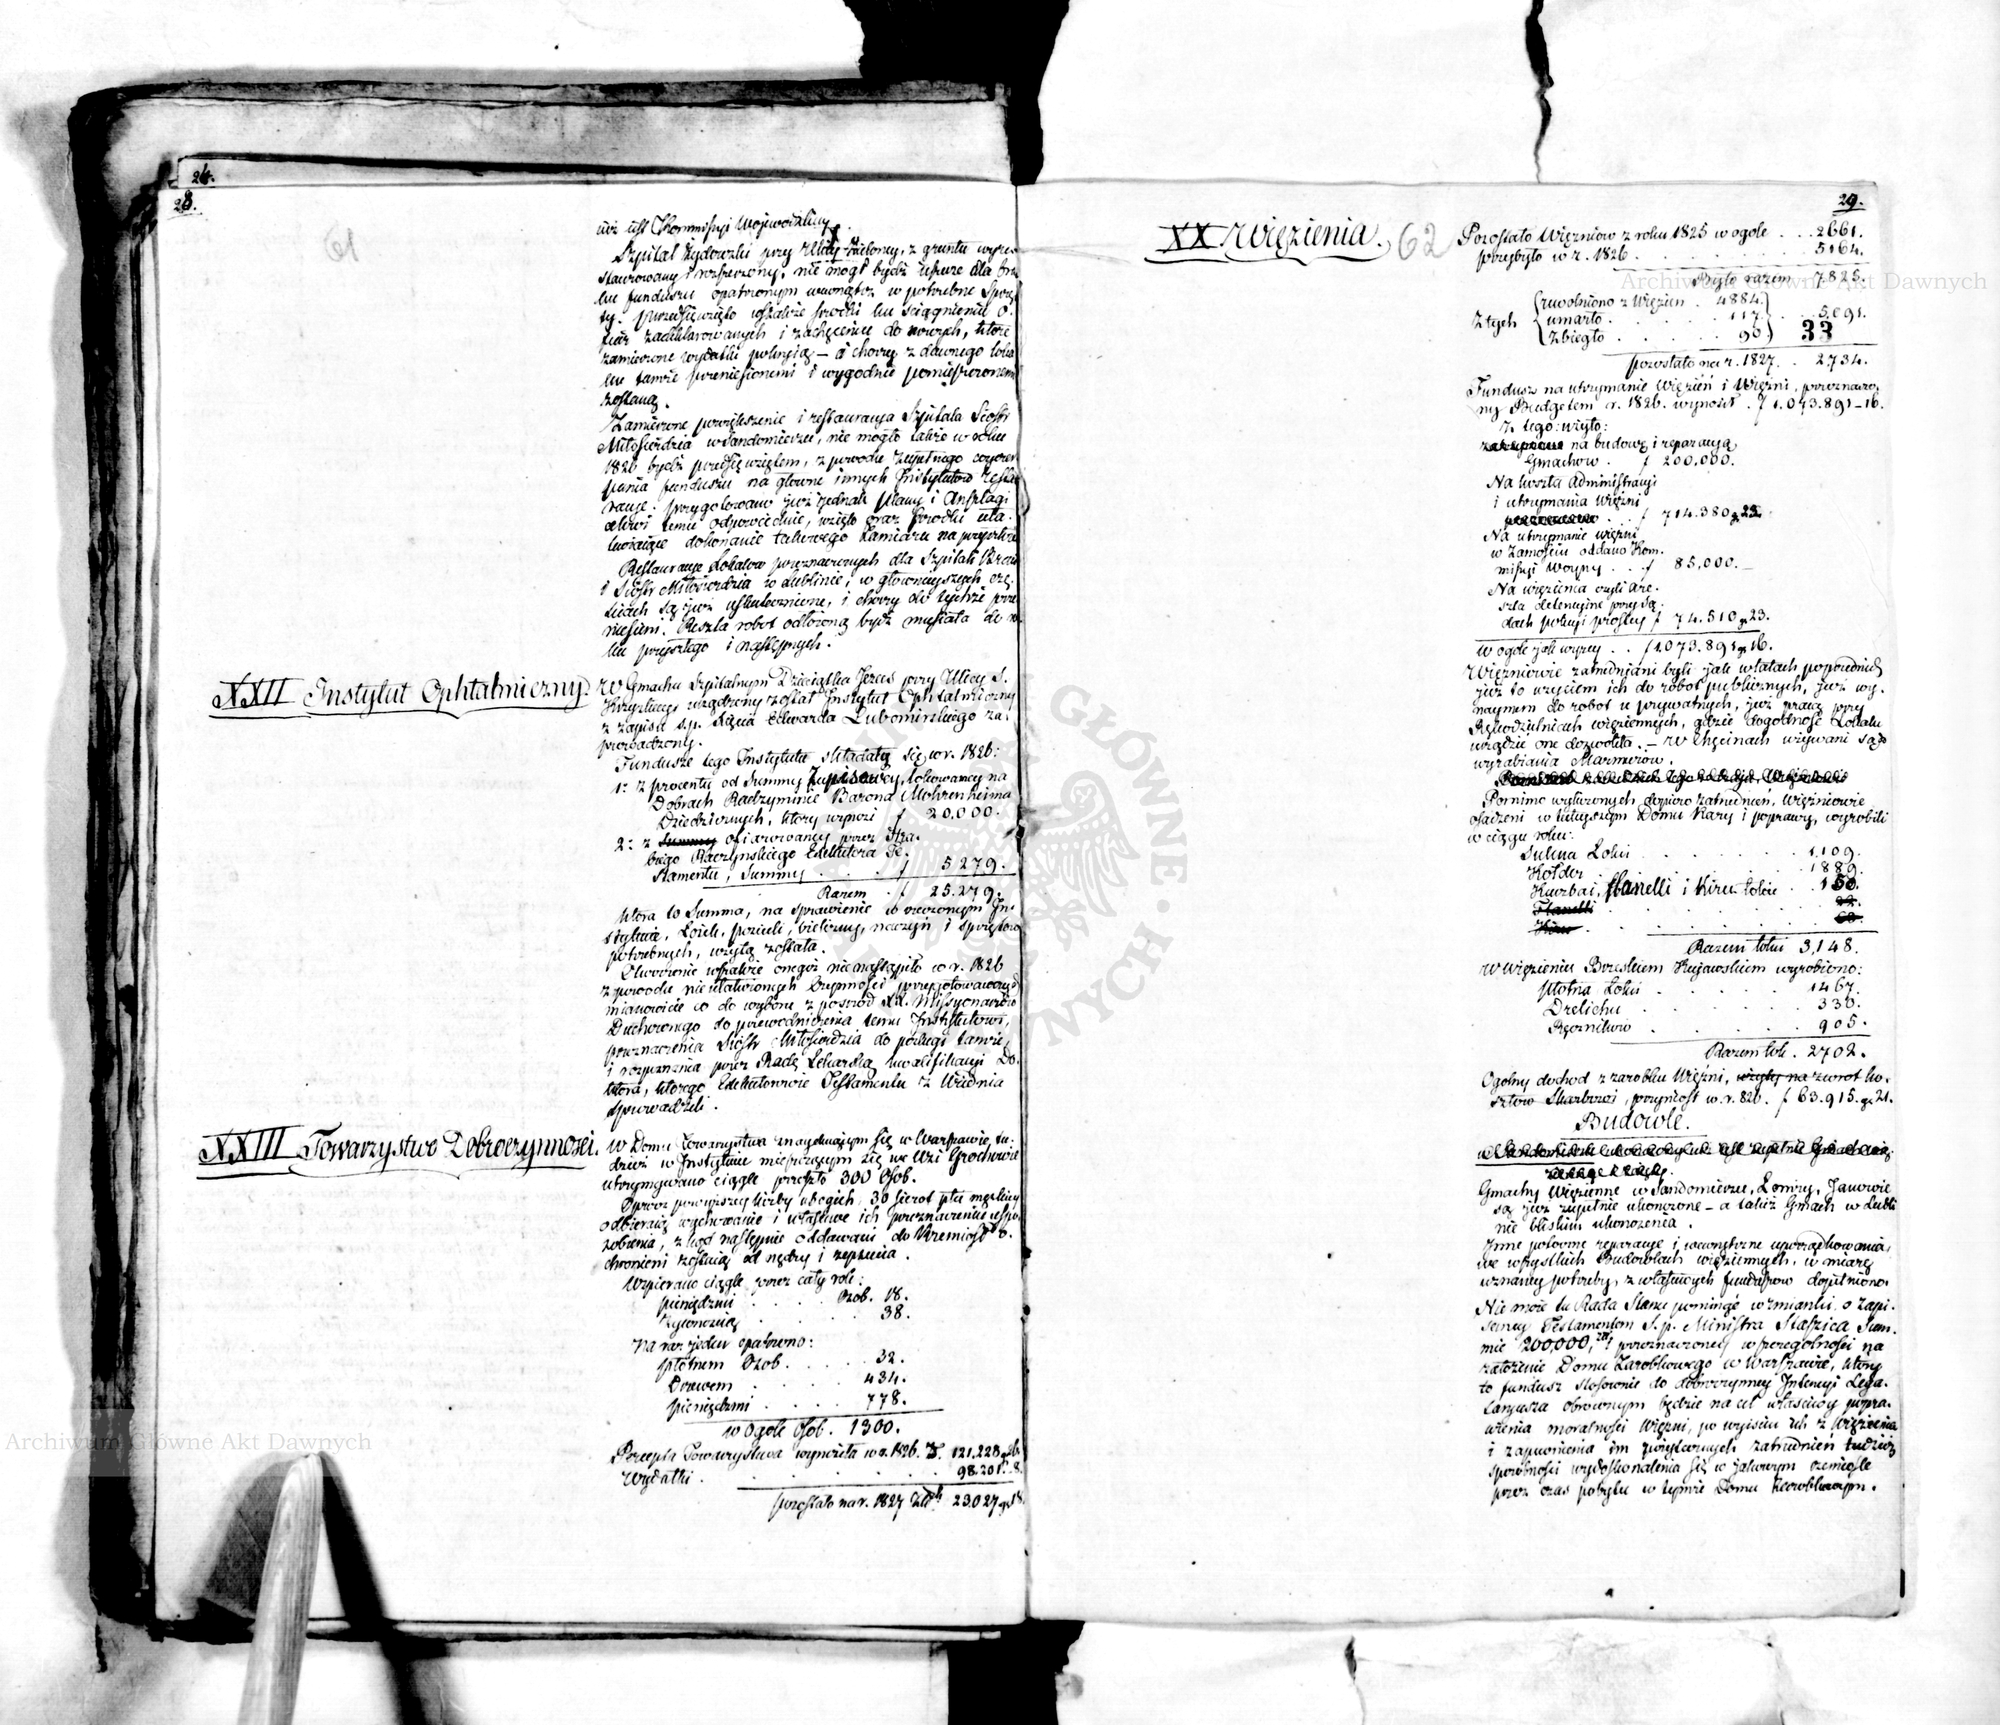 24.
28.
niż ust Kommissyi Wojewódzkiey.
Szpital Żydowski przy Ulicy Zieloney, z gruntu wyre-
staurowany i rozszerzony, nie mógł bydź jeszcze dla bra-
ku funduszu opatrzonym wewnątrz w potrzebne sprzę-
ty. przedsięwzięto wszakże środki ku ściągnieniu o-
fiar zadeklarowanych i zachęceniu do nowych, które
zamierzone wydatki pokryią – a chorzy z dawnego loka-
lu tamże przeniesionemi i wygodnie pomieszczonemi
zostaną.
Zamierzone powiększenie i restauracya Szpitala Sióstr
Miłosierdzia w Sandomierzu, nie mogło także w roku
1826 bydź przedsięwziętem, z powodu zupełnego wyczer-
pania funduszu na główne innych Instytutów restau-
racye. przygotowano już jednak plany i Anszlagi
celowi temu odpowiednie, wzięto oraz środki uła-
twiaiące dokonanie takowego zamiaru na przyszłość
Restauracye Lokalów przeznaczonych dla Szpitali Braci
i Sióstr Miłosierdzia w Lublinie, w głównieyszych czę-
ściach są już uskutecznione, i chorzy do tychże prze-
niesieni. Reszta robót odłożoną bydź musiała do ro-
ku przyszłego i następnych.
XXII Instytut Ophtalmiczny.
W Gmachu Szpitalnym Dzieciątka Jezus przy Ulicy S.
Krzyzkiey urządzony został Instytut Ophtalmiczny
z zapisu ś.p. Xięcia Edwarda Lubomirskiego za-
prowadzony.
Fundusze tego Instytutu składały się w r. 1826:
1: z procentu od Summy Zapisowey, lokowaney na
Dobrach Radzyminie Barona Mohrenheima
Dziedzicznych, który wynosi f 20,000.
2: z Summy ofiarowaney przez Hra-
biego Raczyńskiego Exekutora Te-
stamentu, Summy . . . f 5279.
Razem . f 25.279.
która to Summa, na sprawienie w rzeczonym In-
stytucie, Łóżek, pościeli, bielizny, naczyń i sprzętów
potrzebnych, użytą została.
Otworzenie wszakże onegoż nie nastąpiło w r. 1826
z powodu nieułatwionych czynności przygotowawczych
mianowicie co do wyboru z pośród XX. Missyonarzów
Duchownego do przewodniczenia temu Instytutowi,
przeznaczenia Sióstr Miłosierdzia do posługi tamże,
i rozpoznania przez Radę Lekarską kwalifikacyi Do-
ktora, którego Exekutorowie Testamentu z Wiednia
sprowadzili.
XXIII Towarzystwo Dobroczynności.
W Domu Towarzystwa znayduiącym się w Warszawie, tu-
dzież w Instytucie mieszczącym się we Wsi Grochowie
utrzymywano ciągle przeszło 300 Osób.
Oprócz powyższey liczby ubogich, 30 sierot płci męzkiey
odbieraią wychowanie i właściwe ich przeznaczeniu uspo-
sobienia, z kąd następnie oddawani do Rzemiosł o-
chronieni zostaią od nędzy i zepsucia.
Wspierano ciągle przez cały rok:
pieniędzmi . . . . Osób. 18.
Żywnością . . . . 38.
Na raz jeden opatrzono:
płótnem Osób . . . . 32.
Drzewem . . . . 434.
pieniędzmi . . . . 778.
w Ogóle Osób. 1300.
Percepta Towarzystwa wynosiła w r. 1826. Zł. 121,228 g 26.
Wydatki . . . . . . 98.201.. 8.
pozostało na r. 1827 Złp. 23.027 g 18.
29.
XX Więzienia.
62
Pozostało Więźniów z roku 1825 w ogóle . . . 2661.
przybyło w r. 1826 . . . . . . 5164.
Było razem 7.825.
Z tych
zwolniono z Więzień . 4884.
umarło . . . . 117.
zbiegło . . . . 90.
5,091.
33
pozostało na r. 1827. . 2734.
Fundusz na utrzymanie Więzień i Więźni, przeznaczo-
ny Budgetem r. 1826. wynosił . f 1.073.891–16.
Z tego użyto:
na budowę i reparacyą
Gmachów . f 200,000.
Na koszta administracyi
i utrzymania więźni
f 714.380 g 23.
Na utrzymanie więźni
w Zamościu oddano Kom-
missyi Woyny . . f 85,000.–
Na więzienia czyli are-
szta detencyine przy Są-
dach policyi prostey f 74.510 g 23.
w ogóle jak wyzey . . f 1.073.891 g 16.
Więźniowie zatrudniani byli jak w latach poprzednich
już to użyciem ich do robót publicznych, już wy-
naymem do robót u prywatnych, już pracą przy
Rękodzielniach więziennych, gdzie dogodność Lokalu
urządzić one dozwoliła. – W Chęcinach używani są do
wyrabiania Marmurów.
Pomimo wyłuszczonych dopiero zatrudnień, Więźniowie
osadzeni w tutejszym Domu Kary i poprawy, wyrobili
w ciągu roku:
Sukna Łokci . . . . . 1,109.
Kołder . . . . . . 1889.
Kuczbai, flanelli i Kiru łokci . . 150.
Flanelli . . . . . . 22.
Kiru . . . . . . 60.
Razem łokci 3,148.
W więzieniu Brzeskiem Kujawskiem wyrobiono:
Płótna Łokci . . . . . 1467.
Drelichu . . . . . 330.
Ręczników . . . . . 905.
Razem łok. 2702.
Ogólny dochód z zarobku Więźni, użyty na zwrot ko-
sztów Skarbowi, przyniósł w r. 826. f 63.915. g 21.
Budowle.
Gmachy Więzienne w Sandomierzu, Łomży, Janowie
są już zupełnie ukończone – a także Gmach w Lubli-
nie bliskim ukończenia.
Inne pilowne reparacye i wewnętrzne uporządkowania,
we wszystkich Budowlach więziennych, w miarę
uznaney potrzeby, z właściwych funduszów dopełniono.
Nie może tu Rada Stanu pominąć wzmianki o zapi-
saney Testamentem Ś.p. Ministra Staszica Sum-
mie 200,000, złł. przeznaczoney w szczególności na
założenie Domu Zarobkowego w Warszawie, który
to fundusz stosownie do dobroczynney Intencyi Lega-
taryusza obróconym będzie na cel właściwy popra-
wienia moralności Więźni, po wyiściu ich z Więzienia
i zapewnienia im pożytecznych zatrudnień tudzież
sposobności wydoskonalenia się w jakowym rzemiośle
przez czas pobytu w tymże Domu Zarobkowym.
Archiwum Główne Akt Dawnych
Archiwum Główne Akt Dawnych